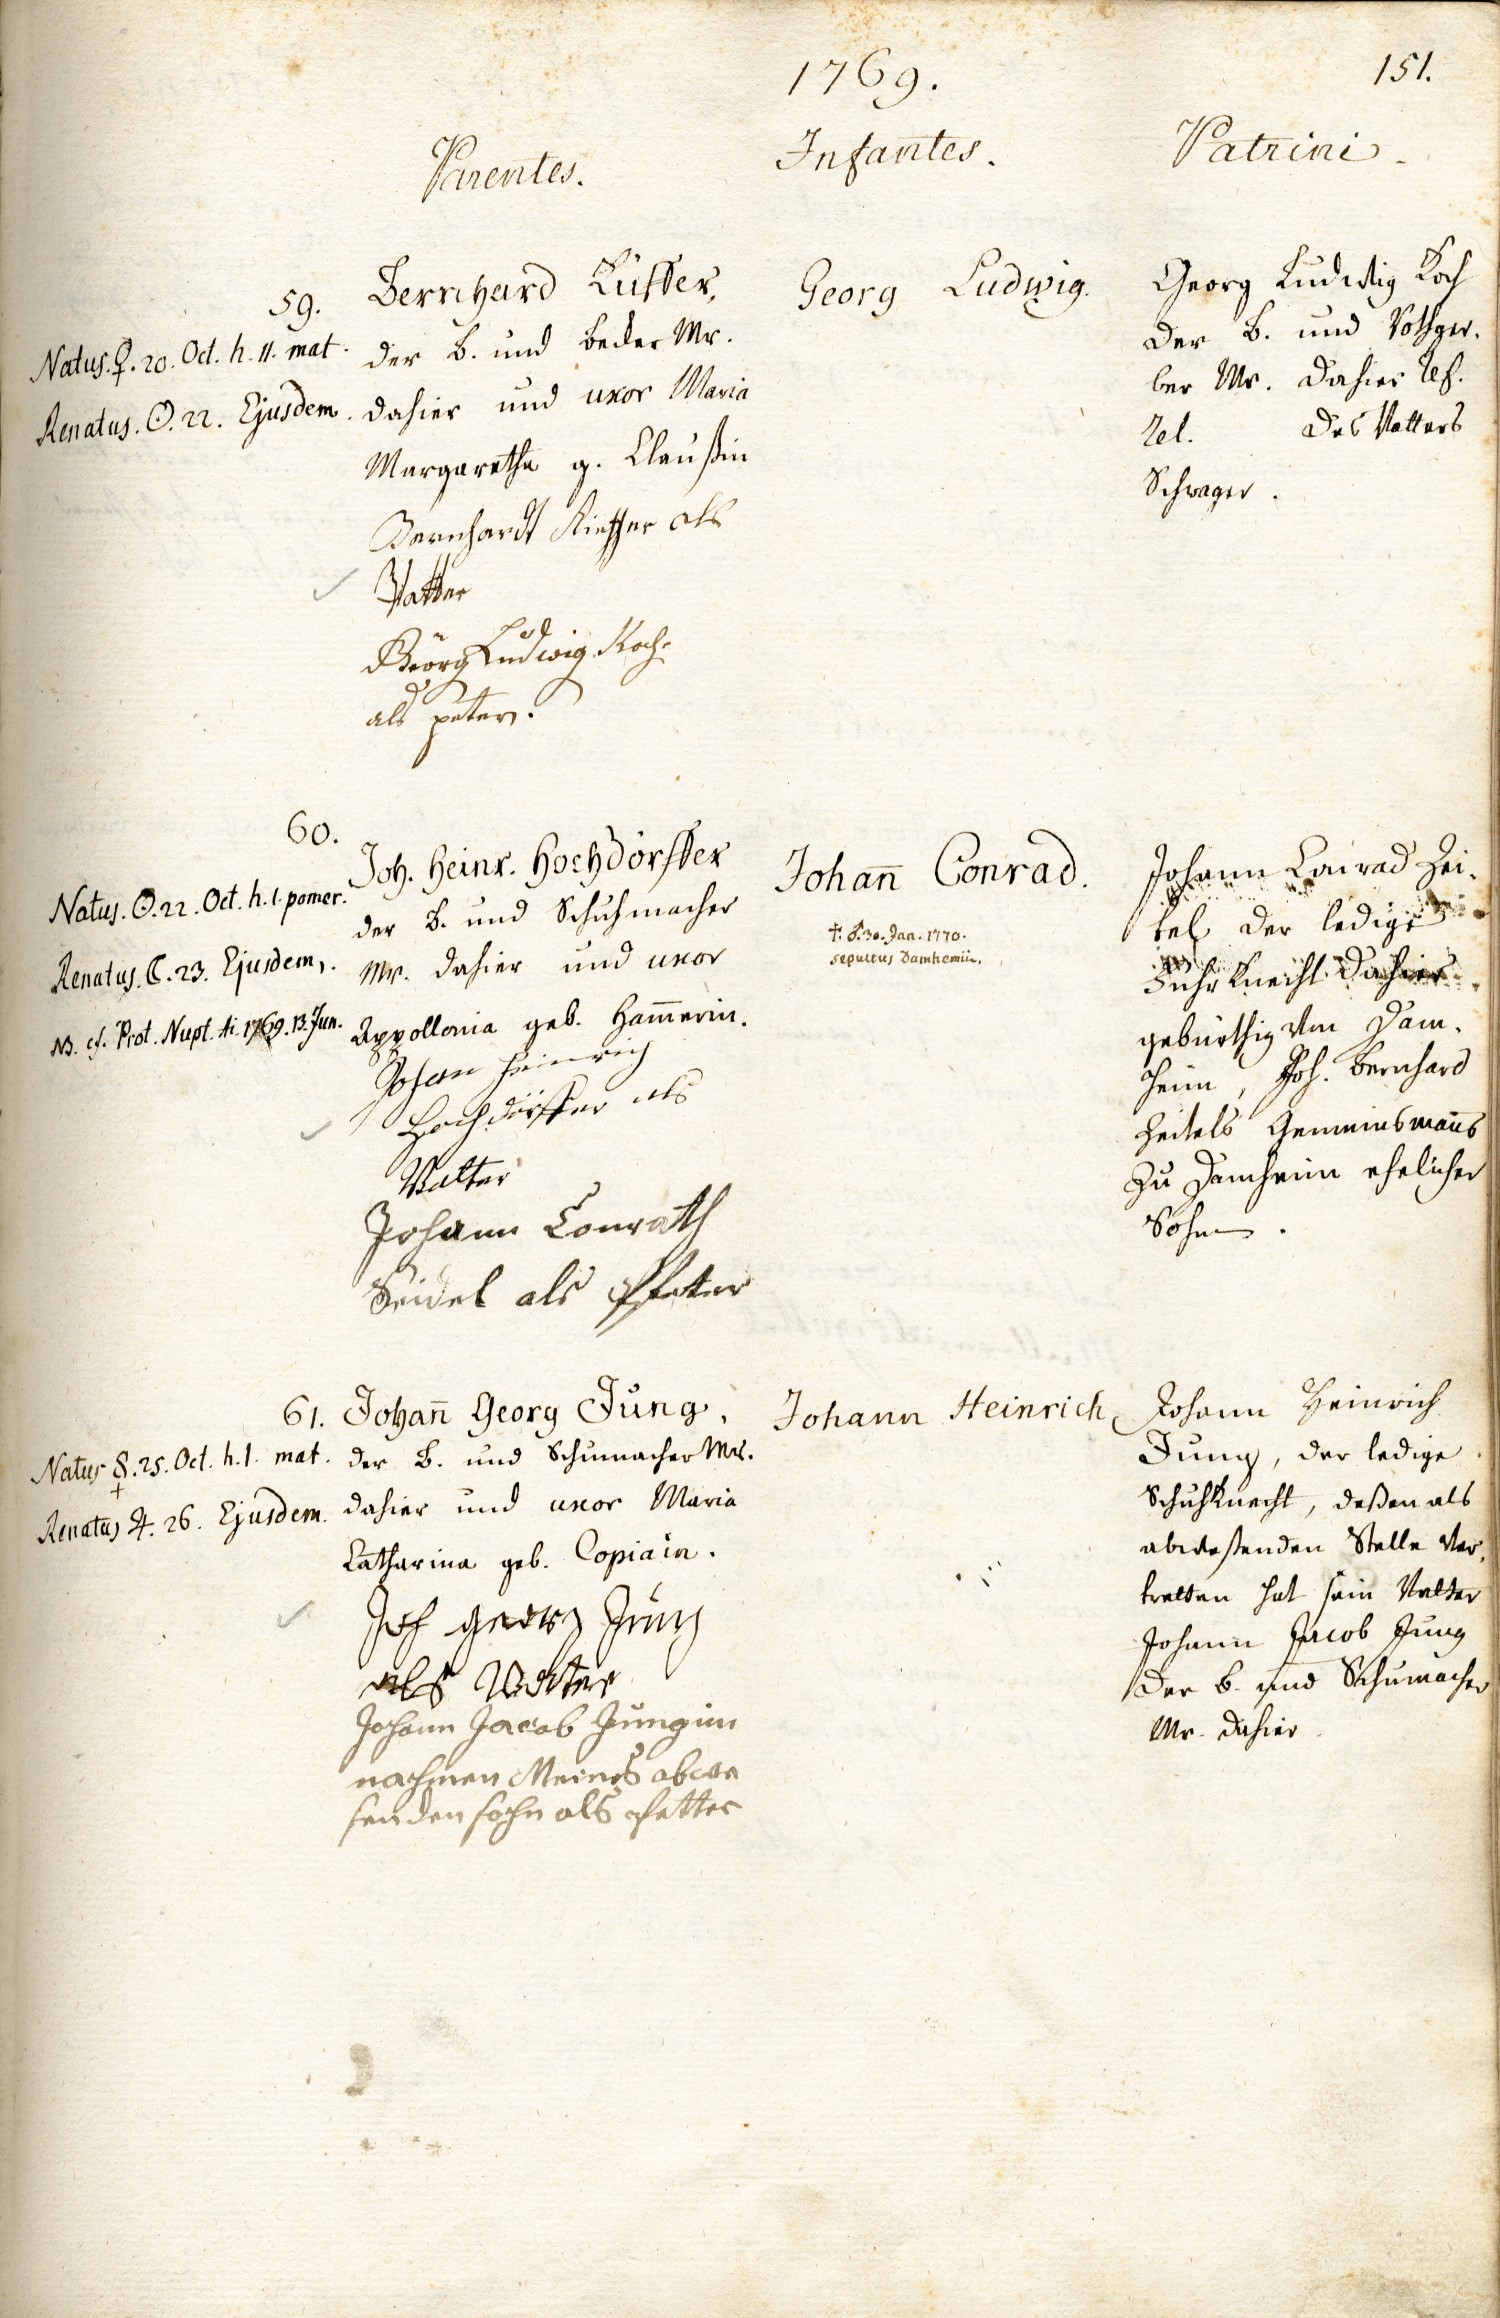 1769.
151.
Parentes.
Infantes.
Patrini.
59.
Natus. ♀. 20. Oct. h. 11. mat.
Renatus. ☉. 22. Ejusdem.
Bernhard Küffer,
der B. und Becker Mr.
dahier und uxor Maria
Margaretha g. Claußin
Bernhardt Kieffer als
Vatter
Georg Ludwig Koch
als peter.
Georg Ludwig.
Georg Ludwig Koch
der B. und Rothger-
ber Mr. dahier ref.
rel. des Vatters
Schwager.
60.
Natus. ☉. 22. Oct. h. 1. pomer.
Renatus. ☾. 23. Ejusdem.
NB. cf. Prot. Nupt. Ai. 1769. 13. Jun.
Joh. Heinr. Hochdörffer
der B. und Schuhmacher
Mr. dahier und uxor
Appollonia geb. Ham̄erin.
Johan Heinrich
Hochdörffer als
Vatter
Johann Conrath
Seidel als Pfetter
Johan̄ Conrad.
†. ♂. 30. Jan. 1770.
sepultus Damhemii.
Johann Conrad Zei-
tel der ledige
Fuhrknecht dahier
gebürthig von Dam-
heim, Joh. Bernhard
Zeitels Gemeinsman̄s
zu Damheim ehelicher
Sohn.
61.
Natus ☿. 25. Oct. h. 1. mat.
Renatus ♃. 26. Ejusdem.
Johan̄ Georg Jung,
der B. und Schumacher Mr.
dahier und uxor Maria
Catharina geb. Copiain.
Joh georg Jung
als Vatter
Johann Jacob Jung im
nachmen Meines abwe
senden sohn als Petter
Johann Heinrich
Johann Heinrich
Jung, der ledige
Schuhknecht, deßen als
abweßenden Stelle ver-
tretten hat sein Vatter
Johann Jacob Jung
der B. und Schumacher
Mr. dahier.